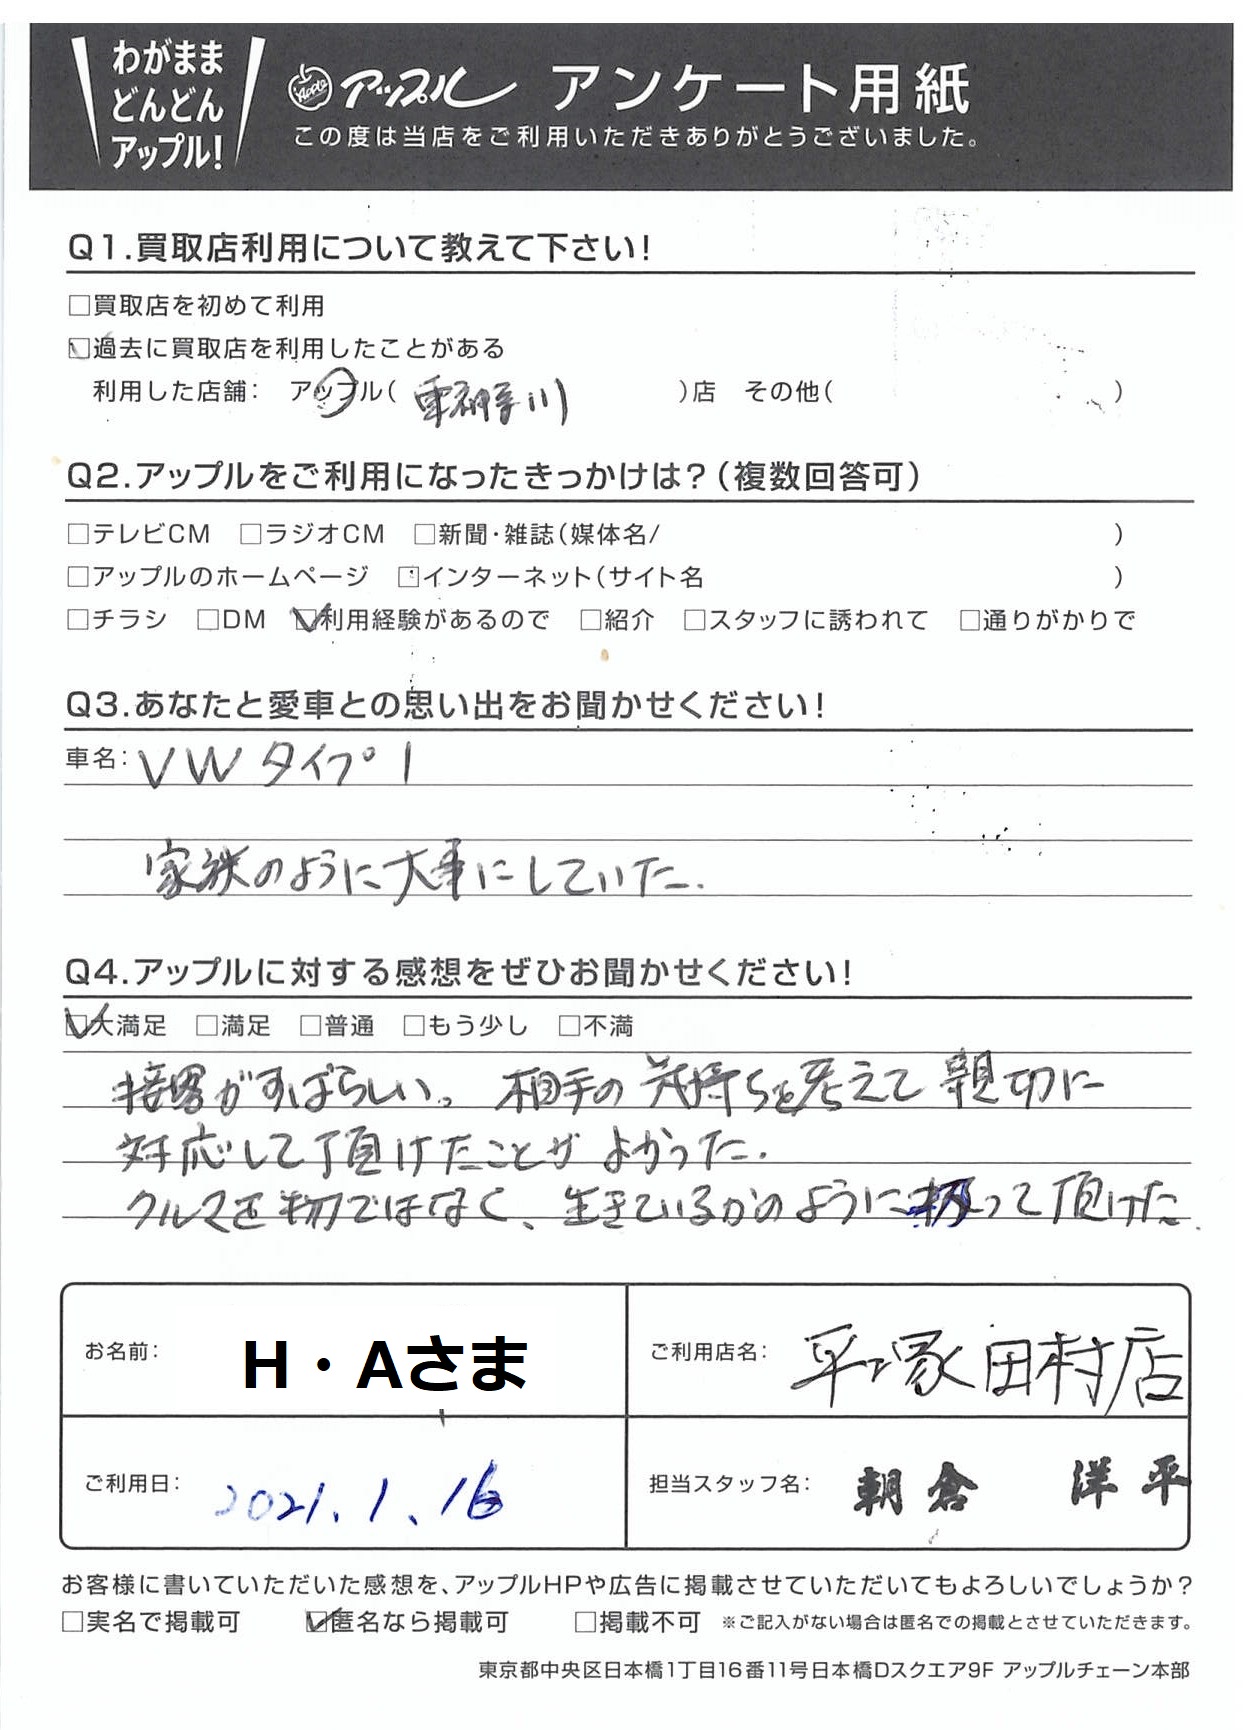 わがまま
どんどん
アップル!
Apple アップル アンケート用紙
この度は当店をご利用いただきありがとうございました。
Q1.買取店利用について教えて下さい!
□買取店を初めて利用
☑過去に買取店を利用したことがある
利用した店舗: アップル( )店 その他( )
Q2.アップルをご利用になったきっかけは?(複数回答可)
□テレビCM □ラジオCM □新聞・雑誌(媒体名/ )
□アップルのホームページ □インターネット(サイト名 )
□チラシ □DM ☑利用経験があるので □紹介 □スタッフに誘われて □通りがかりで
Q3.あなたと愛車との思い出をお聞かせください!
車名: VW タイプ1
家族のように大事にしていた.
Q4.アップルに対する感想をぜひお聞かせください!
☑大満足 □満足 □普通 □もう少し □不満
接客がすばらしい。相手の気持ちを考えて親切に
対応して頂けたことがよかった.
クルマを物ではなく、生きているかのように扱って頂けた.
お名前: H・Aさま
ご利用店名: 平塚田村店
ご利用日: 2021.1.16
担当スタッフ名: 朝倉 洋平
お客様に書いていただいた感想を、アップルHPや広告に掲載させていただいてもよろしいでしょうか?
□実名で掲載可 ☑匿名なら掲載可 □掲載不可 ※ご記入がない場合は匿名での掲載とさせていただきます。
東京都中央区日本橋1丁目16番11号日本橋Dスクエア9F アップルチェーン本部